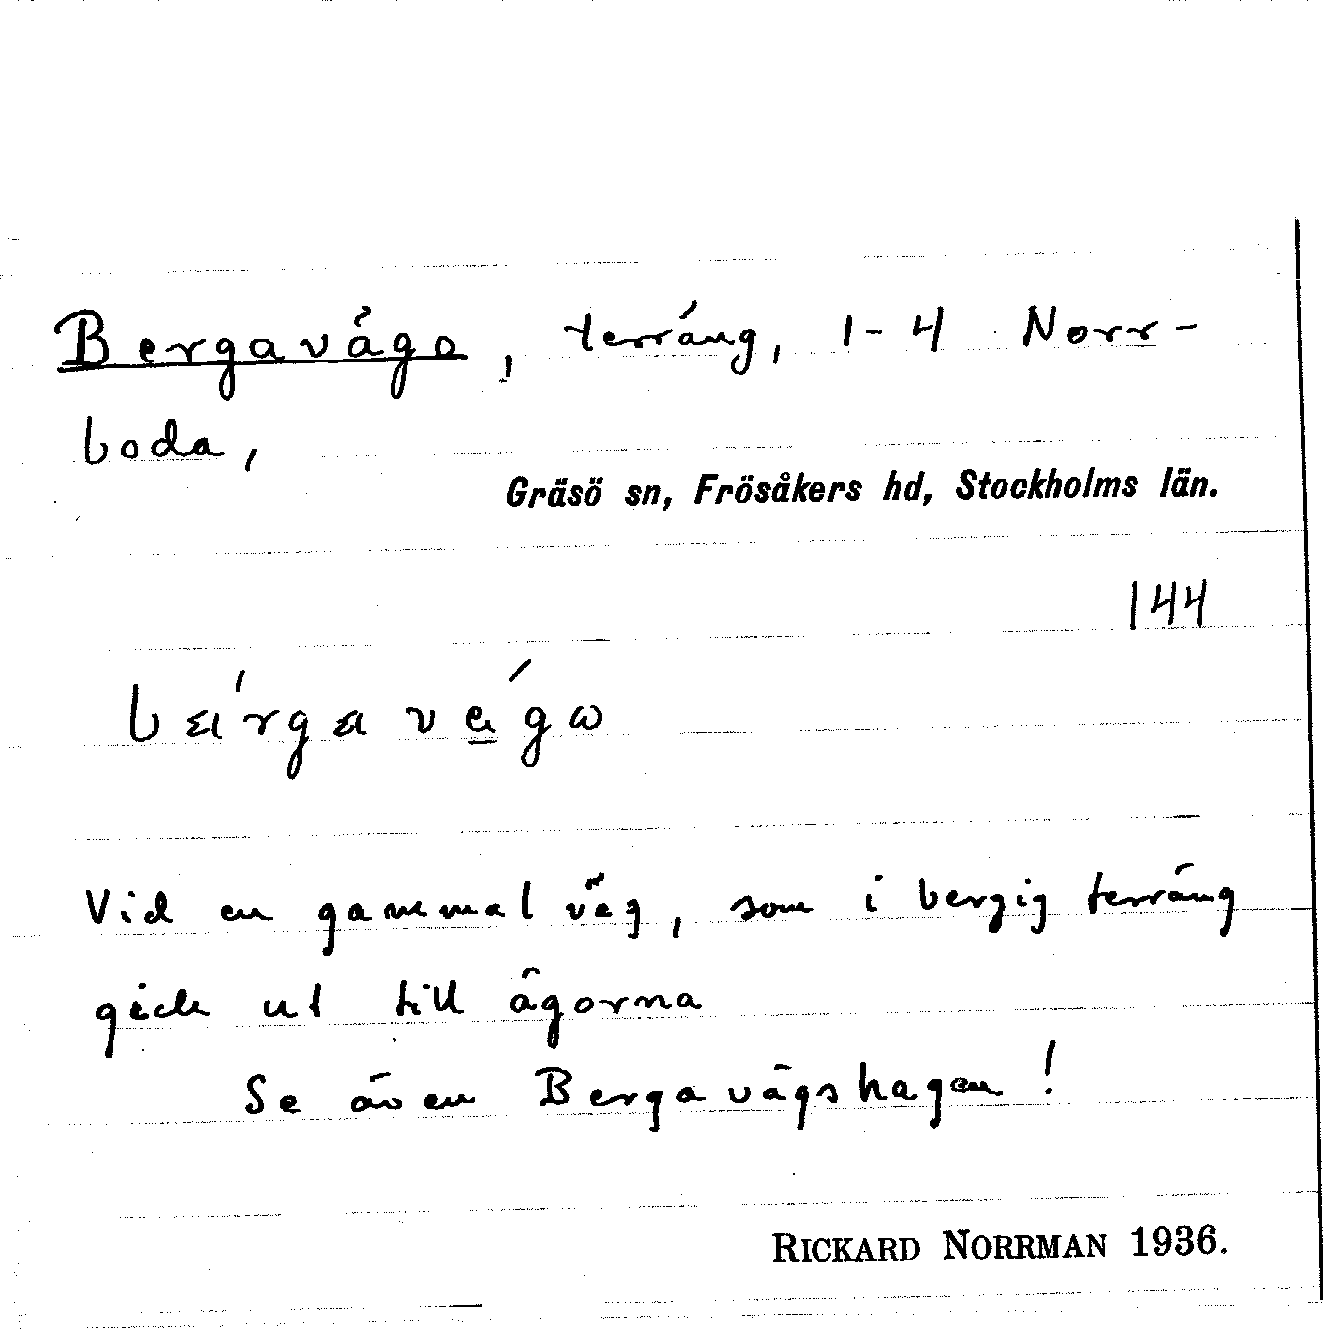 Bergavägo, terräng, 1-4 Norr-
boda,
Gräsö sn, Frösåkers hd, Stockholms län.
144
Vid en gammal väg, som i bergig terräng
gick ut till ägorna
Se även Bergavägshagen!
RICKARD NORRMAN 1936.